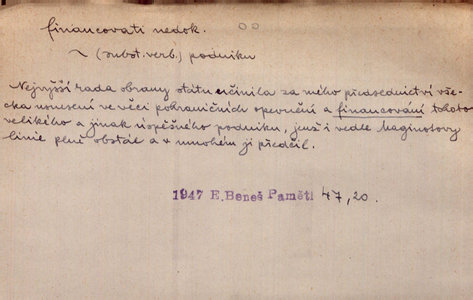 financovati nedok.
~ (subst. verb.) podniku
Nejvyšší rada obrany státu učinila za mého předsednictví vše-
cka usnesení ve věci pohraničních opevnění a financování tohoto
velikého a jinak úspěšného podniku, jenž i vedle Maginotovy
linie plně obstál a v mnohém ji předčil.
1947 E. Beneš Paměti 47, 20.